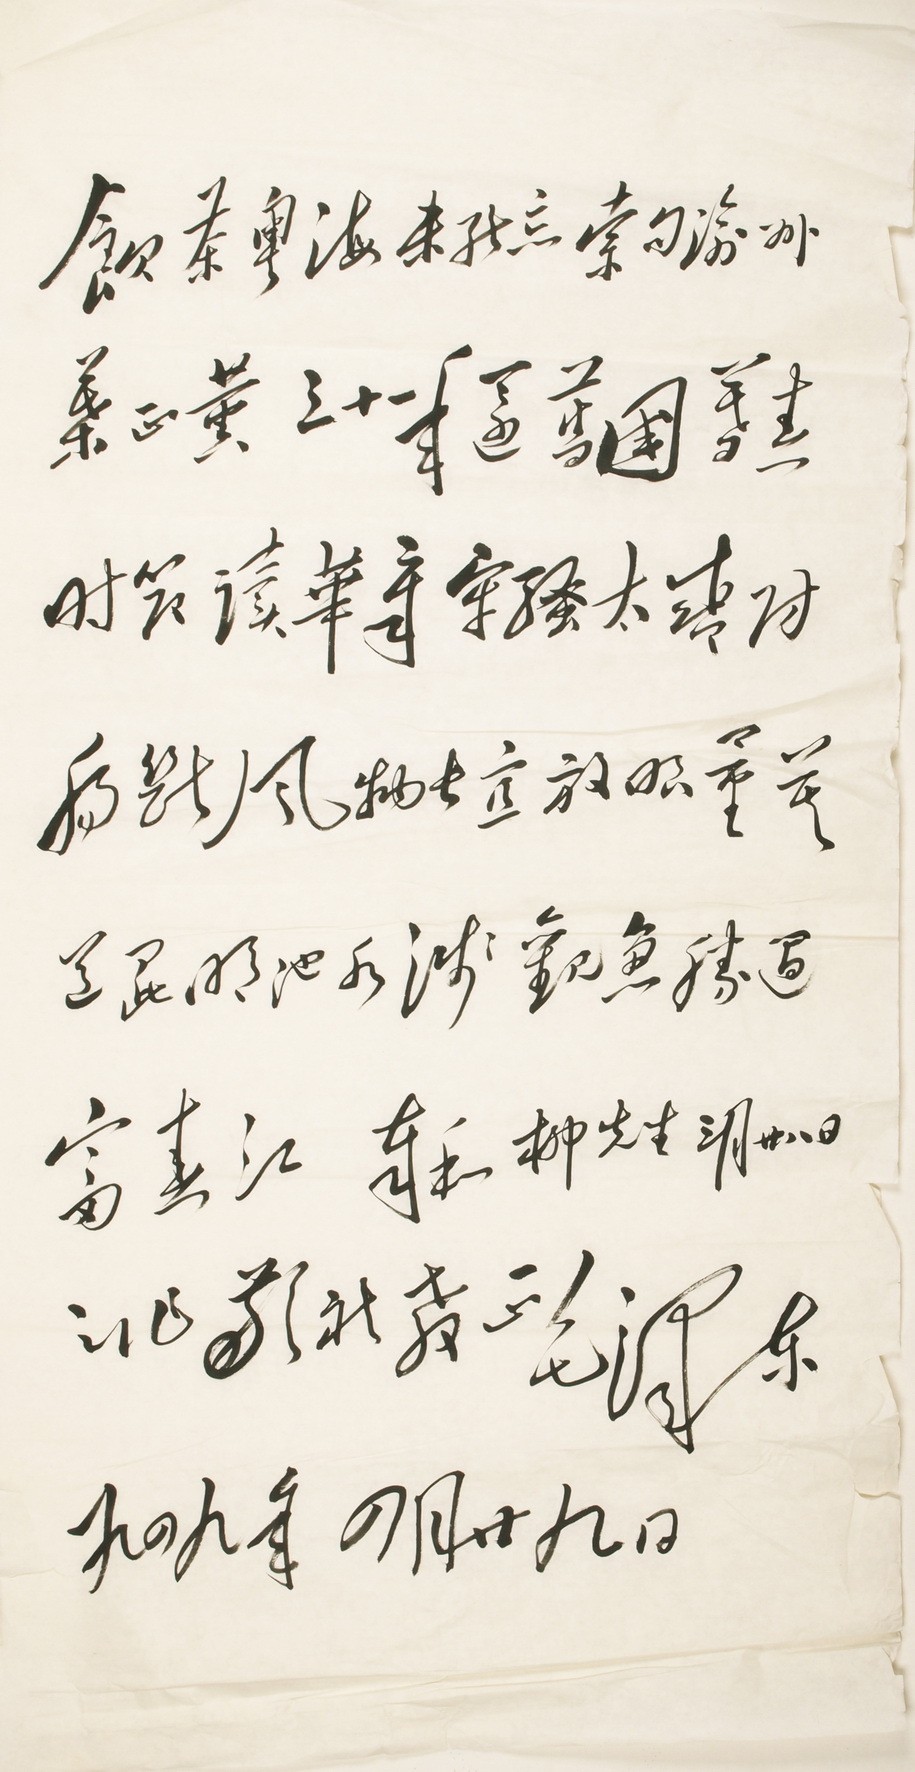 飲茶粵海未能忘索句渝州
葉正黄三十一年還舊國暮春
时節讀華章牢騷太盛防
腸斷風物长宜放眼量莫
道昆明池水浅觀魚勝過
富春江 奉和柳先生三月廿八日
之作敬祈教正毛澤东
一九四九年 四月廿九日